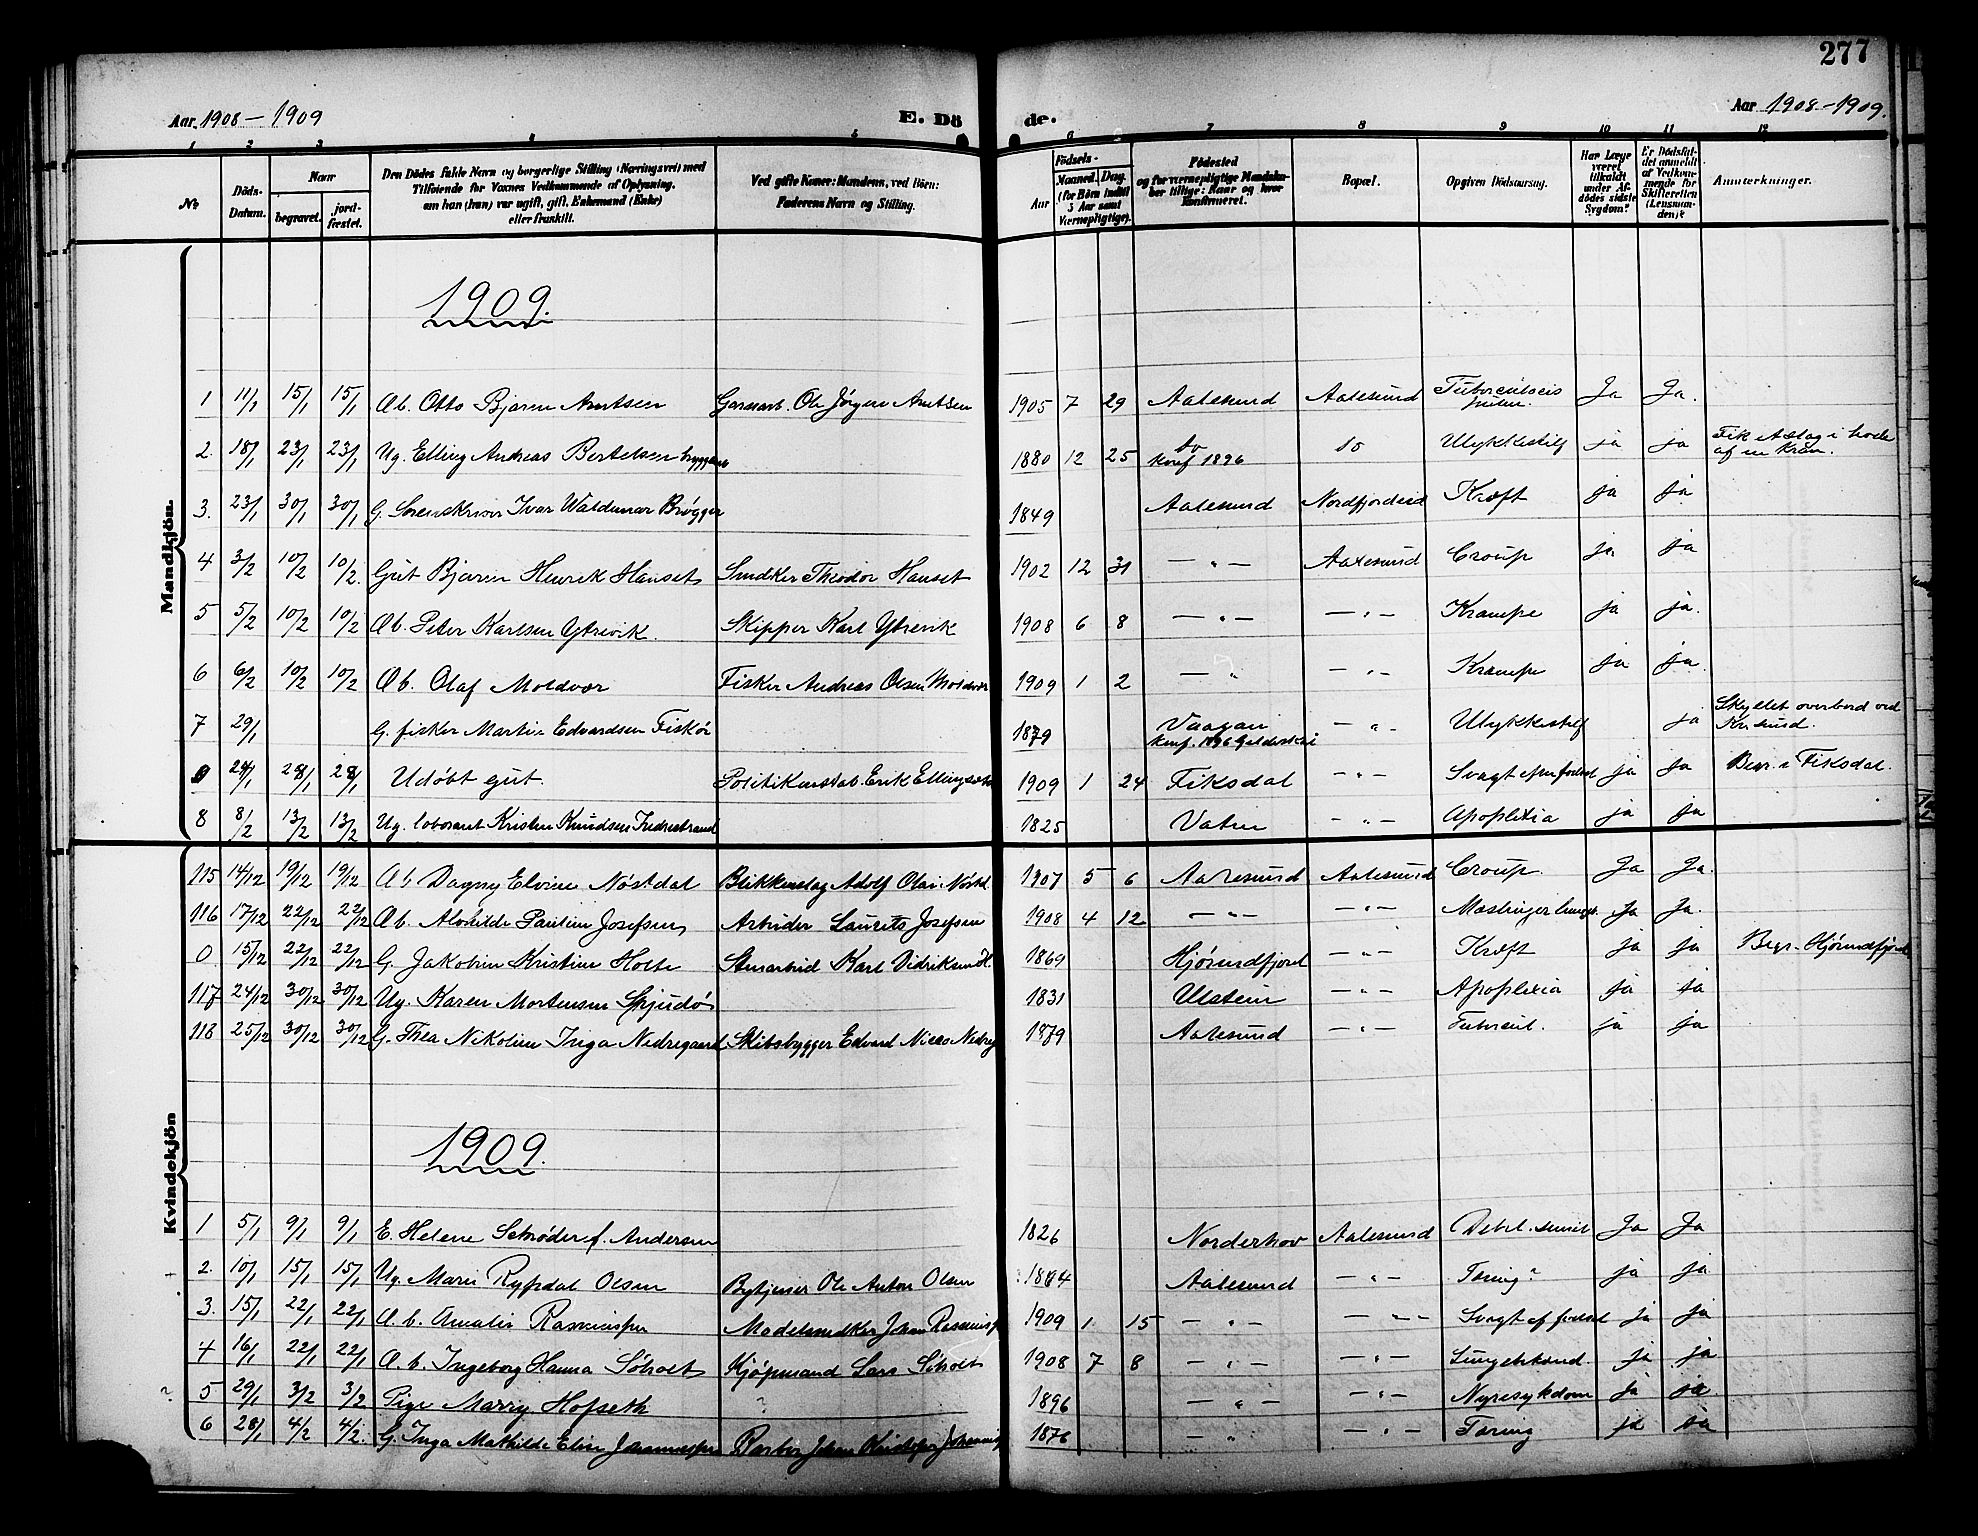 277
Aar 1908 - 1909
E. Dö de.
Aar 1908 - 1909.
1 2 3 4 5 6 7 8 9 10 11 12
No
Döds-Datum.
Naar begravet. jordfæstet.
Den Dödes fulde Navn og borgerlige Stilling (Næringsvei) med
Tilföiende for Voxnes Vedkommende af Oplysning,
om han (hun) var ugift, gift, Enkemand (Enke)
eller fraskilt.
Ved gifte Koner: Mandens, ved Börn:
Faderens Navn og Stilling.
Födsels-
Aar Maaned. Dag
(for Börn indtil
5 Aar samt
Værnepligtige).
Födested
og for værnepligtige Mandskaber tillige: Naar og hvor
konfirmeret.
Bopæl.
Opgiven Dödsaarsag.
Har Læge været tilkaldt under Afdödes sidste Sygdom?
Er Dödsfaldet anmeldt af Vedkommende for Skifteretten (Lensmanden)?
Anmærkninger.
Mandkjön.
1909.
1 11/1 15/1 15/1 Æb. Otto Bjarne Arntsen Ole Jörgen Arntsen 1905 7 29 Aalesund Aalesund Tuberculosis Ja Ja.
2. 18/1 23/1 23/1 Ug. Elling Andreas Bertelsen bryggearb 1880 12 25 do Konf 1896 do Ulykkestilf ja ja Fik et Slag i hode af en Kran.
3. 23/1 30/1 30/1 G. Sorenskriver Ivar Waldemar Brögger 1849 Aalesund Nordfjordeid Kræft ja ja
4 3/2 10/2 10/2. Gut Bjarne Henrik Hanset Snedker Theodor Hanset 1902 12 31 — " — Aalesund Croup ja ja
5 5/2 10/2 10/2 Æb. Peter Karlsen Ytrevik. Skipper Karl Ytrevik 1908 6 8 — " — — " — Krampe ja ja.
6 6/2 10/2 10/2 Æb. Olaf Moldvær Fisker Andreas Olsen Moldvær 1909 1 2 — " — " — Krampe ja ja.
7 29/1 G. fisker Martin Edvardsen Fiskö 1879 Vaagan Konf. 1896 — " — Ulykkestilf ja Skyllet overbord ved Kr.sund.
0 24/1 28/1 28/1 Udöbt gut. Politikonstab. Erik Ellingsæter 1909 1 24 Fiksdal — " — Svagt efter fødsel ja ja Begr. i Fiksdal.
8 8/2 13/2 13/2 Ug. loborant Kristen Knudsen Indrestrand 1825 Vatne — " — Apoplexia ja ja
Kvindekjön
115 14/12 19/12 19/12 Æb Dagny Elvine Nöstdal Blikkenslag Adolf Olai Nöstd. 1907 5 6 Aalesund Aalesund Croup. Ja Ja.
116 17/12 22/12 22/12 Æb. Alvhilde Pauline Josefsen Arbeider Laurits Josefsen 1908 4 12 — " — — " — Mæslinger Ja Ja.
0 15/12 22/12 22/12 G. Jakobine Kristine Holte Stenarbeid Karl Vidriksen H. 1869 Hjörundfjord — " — Kræft ja ja Begr. Hjörundfjord
117 24/12 30/12 30/12 Ug. Karen Mortensen 1831 Ulstein — " — Apoplexia ja ja
118 25/12 30/12 30/12 G. Thea Nikoline Inga Nedregaard Skibsbygger Edvard Nedreg 1879 Aalesund — " — Tubercul. ja ja
1909.
1 5/1 9/1 9/1 E. Helene Schröder f. Andersen 1826 Norderhov Aalesund Debil. senil Ja Ja
2. 10/1 15/1 15/1 Ug. Marie Rypdal Olsen Bytjener Ole Anton Olsen 1884 Aalesund — " — Tæring? ja ja
3. 15/1 22/1 22/1 Æ. b. Amalie Rasmussen Modelsnedker Johan Rasmussen 1909 1. 15 — " — — " — Svagt af fødsel ja ja
4 16/1 22/1 22/1 Æ. b. Ingeborg Hanna Söholt Kjöpmand Lars Söholt 1908 7 8 — " — — " — ja ja
5 29/1 3/2 3/2 Pige Marry Hofseth " 1896 — " — — " — Nyresykdom ja ja
6 28/1 4/2 4/2. G. Inga Mathilde Elise Johannessen Barber Johan Kristoffer Johannes 1876 — " — " — Tæring ja ja